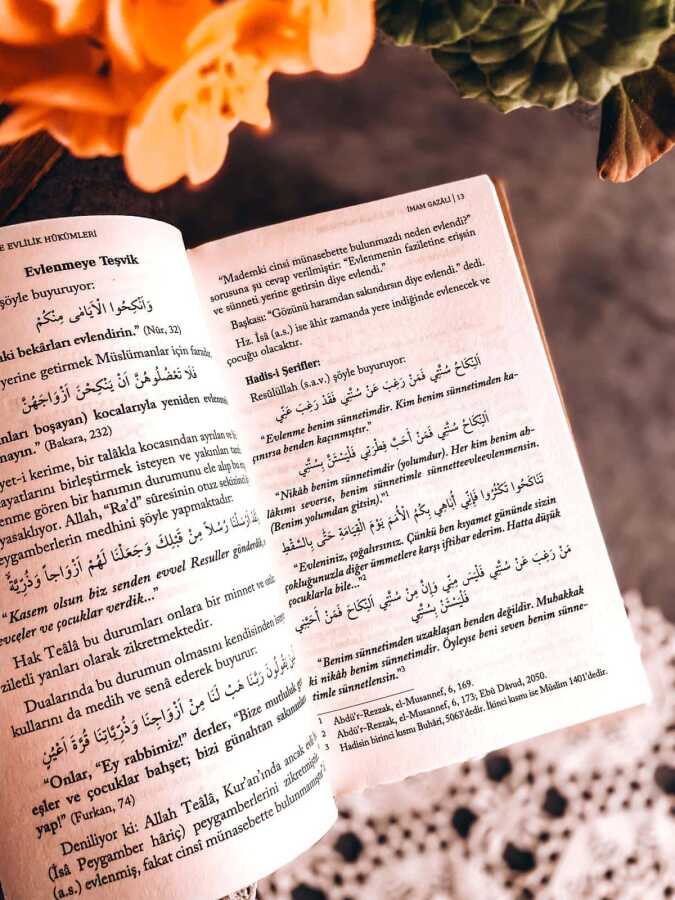 E EVLİLİK HÜKÜMLERİ
Evlenmeye Teşvik
şöyle buyuruyor:
وَأَنْكِحُوا الْأَيَامٰى مِنْكُمْ
ki bekârları evlendirin.” (Nûr, 32)
yerine getirmek Müslümanlar için farzdır.
فَلَا تَعْضُلُوهُنَّ اَنْ يَنْكِحْنَ اَزْوَاجَهُنَّ
nları boşayan) kocalarıyla yeniden
mayın.” (Bakara, 232)
yet-i kerime, bir talâkla kocasından ayrılan ve
ayatlarını birleştirmek isteyen ve yakınları
enme gören bir hanımın durumunu ele alıp bu
yasaklıyor. Allah, “Ra’d” sûresinin otuz sekizinci
eygamberlerin medhini şöyle yapmaktadır:
اَرْسَلْنَا رُسُلًا مِنْ قَبْلِكَ وَجَعَلْنَا لَهُمْ اَزْوَاجًا وَذُرِّيَّةً
“Kasem olsun biz senden evvel Resuller gönderdik,
evceler ve çocuklar verdik...”
Hak Teâlâ bu durumları onlara bir minnet ve
ziletli yanları olarak zikretmektedir.
Dualarında bu durumun olmasını kendisinden
kullarını da medih ve senâ ederek buyurur:
يَقُولُونَ رَبَّنَا هَبْ لَنَا مِنْ اَزْوَاجِنَا وَذُرِّيَّاتِنَا قُرَّةَ اَعْيُنٍ
“Onlar, “Ey rabbimiz!” derler, “Bize mutluluk
eşler ve çocuklar bahşet; bizi günahtan sakınanlar
yap!” (Furkan, 74)
Deniliyor ki: Allah Teâlâ, Kur’an’ında ancak
(İsâ Peygamber hâriç) peygamberlerini zikretmiştir.
(a.s.) evlenmiş, fakat cinsi münasebette bulunmamıştır.
İMAM GAZÂLİ | 13
“Mademki cinsi münasebette bulunmazdı neden evlendi?”
sorusuna şu cevap verilmiştir: “Evlenmenin faziletine erişsin
ve sünneti yerine getirsin diye evlendi.”
Başkası: “Gözünü haramdan sakındırsın diye evlendi.” dedi.
Hz. Îsâ (a.s.) ise âhir zamanda yere indiğinde evlenecek ve
çocuğu olacaktır.
Hadis-i Şerifler:
Resûlüllah (s.a.v.) şöyle buyuruyor:
اَلنِّكَاحُ سُنَّتِي فَمَنْ رَغِبَ عَنْ سُنَّتِي فَقَدْ رَغِبَ عَنِّي
“Evlenme benim sünnetimdir. Kim benim sünnetimden ka-
çınırsa benden kaçınmıştır.”
اَلنِّكَاحُ سُنَّتِي فَمَنْ اَحَبَّ فِطْرَتِي فَلْيَسْتَنَّ بِسُنَّتِي
“Nikâh benim sünnetimdir (yolumdur). Her kim benim ah-
lâkımı severse, benim sünnetimle sünnetteevleevlenmensin.
(Benim yolumdan gitsin).”1
تَنَاكَحُوا تَكْثُرُوا فَإِنِّي اُبَاهِي بِكُمُ الْاُمَمَ يَوْمَ الْقِيَامَةِ حَتَّى بِالسِّقْطِ
“Evleniniz, çoğalırsınız. Çünkü ben kıyamet gününde sizin
çokluğunuzla diğer ümmetlere karşı iftihar ederim. Hatta düşük
çocuklarla bile...”2
مَنْ رَغِبَ عَنْ سُنَّتِي فَلَيْسَ مِنِّي وَإِنَّ مِنْ سُنَّتِي اَلنِّكَاحَ فَمَنْ اَحَبَّنِي
فَلْيَسْتَنَّ بِسُنَّتِي
“Benim sünnetimden uzaklaşan benden değildir. Muhakkak
ki nikâh benim sünnetimdir. Öyleyse beni seven benim sünne-
timle sünnetlensin.”3
1 Abdü’r-Rezzak, el-Musannef, 6, 169.
2 Abdü’r-Rezzak, el-Musannef, 6, 173; Ebû Dâvud, 2050.
3 Hadisin birinci kısmı Buhâri, 5063’dedir. İkinci kısmı ise Müslim 1401’dedir.